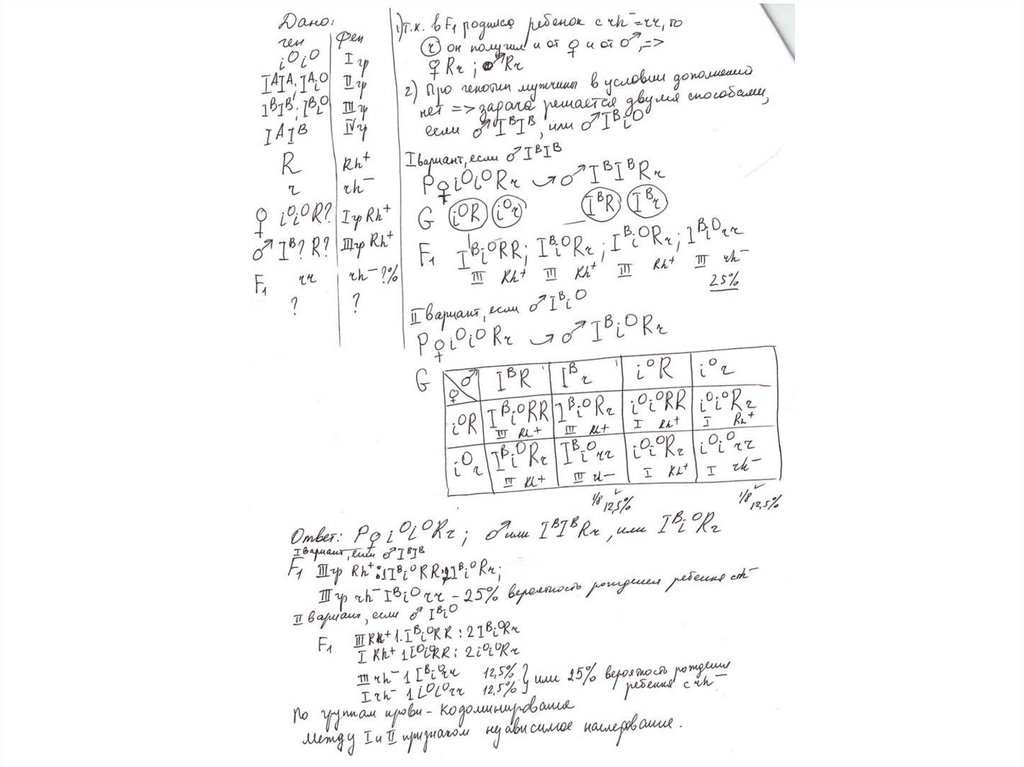 Дано:
ген Фен
i⁰i⁰ I гр
IᴬIᴬ; Iᴬi⁰ II гр
IᴮIᴮ; Iᴮi⁰ III гр
IᴬIᴮ IV гр
R Rh⁺
r rh⁻
♀ i⁰i⁰R? I гр Rh⁺
♂ Iᴮ? R? III гр Rh⁺
F₁ rr rh⁻?%
? ?
1) т.к. в F₁ родился ребенок с rh⁻=rr, то
r он получил и от ♀ и от ♂, =>
♀Rr; ♂Rr
2) Про генотип мужчины в условии дополнений
нет => задача решается двумя способами,
если ♂IᴮIᴮ, или ♂Iᴮi⁰
I вариант, если ♂IᴮIᴮ
P ♀ i⁰i⁰Rr → ♂ IᴮIᴮRr
G i⁰R i⁰r IᴮR Iᴮr
F₁ Iᴮi⁰RR; Iᴮi⁰Rr; Iᴮi⁰Rr; Iᴮi⁰rr
III Rh⁺ III Rh⁺ III Rh⁺ III rh⁻
25%
II вариант, если ♂Iᴮi⁰
P ♀ i⁰i⁰Rr → ♂ Iᴮi⁰Rr
G ♀ ♂ IᴮR Iᴮr i⁰R i⁰r
i⁰R Iᴮi⁰RR Iᴮi⁰Rr i⁰i⁰RR i⁰i⁰Rr
III Rh⁺ III Rh⁺ I Rh⁺ I Rh⁺
i⁰r Iᴮi⁰Rr Iᴮi⁰rr i⁰i⁰Rr i⁰i⁰rr
III Rh⁺ III rh⁻ I Rh⁺ I rh⁻
1/8 12,5% 1/8 12,5%
Ответ: P ♀ i⁰i⁰Rr; ♂ или IᴮIᴮRr, или Iᴮi⁰Rr
I вариант, если ♂IᴮIᴮ
F₁ III гр Rh⁺: 1Iᴮi⁰RR: 2Iᴮi⁰Rr;
III гр rh⁻ Iᴮi⁰rr – 25% вероятность рождения ребенка с rh⁻
II вариант, если ♂ Iᴮi⁰
F₁ III Rh⁺ 1 Iᴮi⁰RR : 2 Iᴮi⁰Rr
I Rh⁺ 1 i⁰i⁰RR : 2 i⁰i⁰Rr
III rh⁻ 1 Iᴮi⁰rr 12,5% } или 25% вероятность рождения
I rh⁻ 1 i⁰i⁰rr 12,5% ребенка с rh⁻
По группам крови – Кодоминирование
Между I и II признаком независимое наследование.